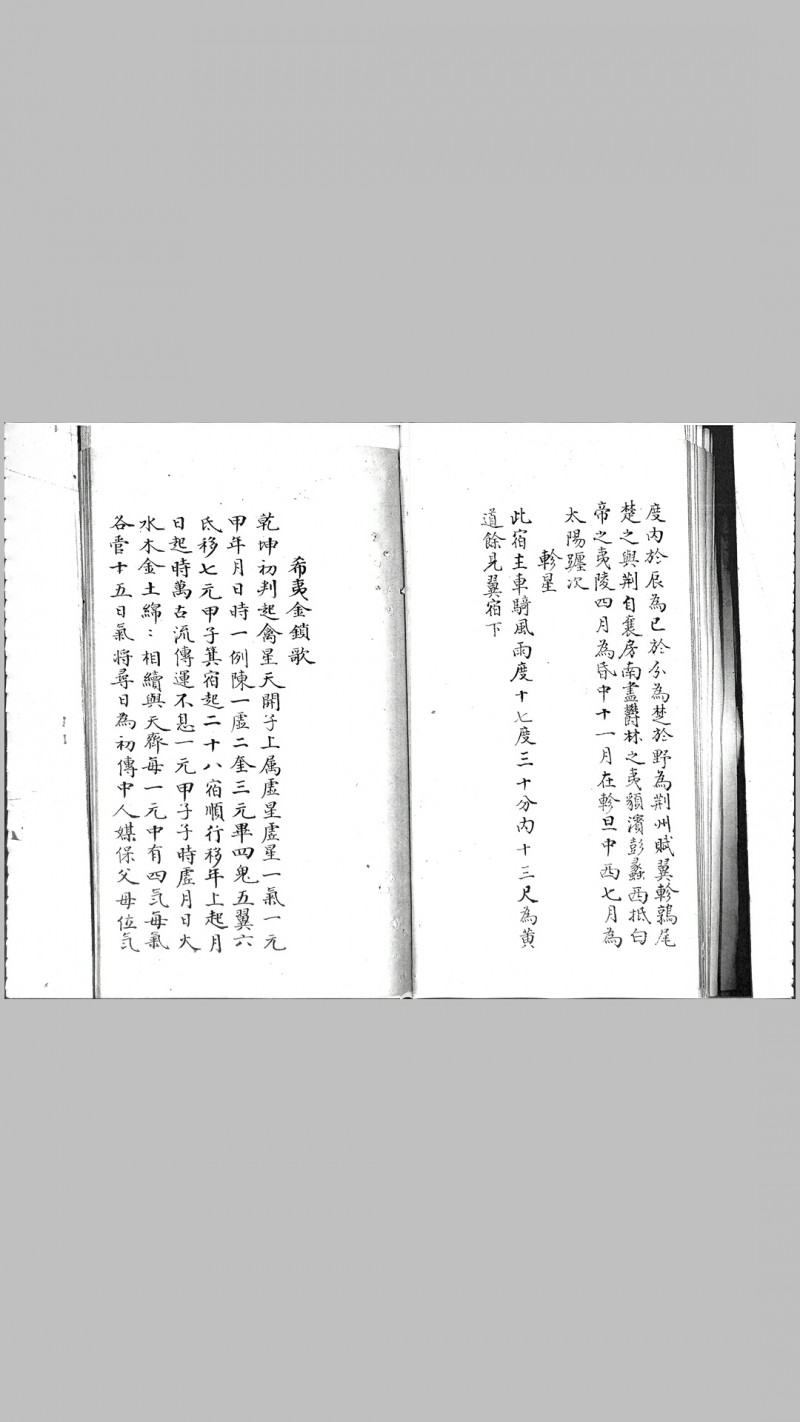 度內於辰為巳於分為楚於野為荆州賦翼軫鶉尾
楚之與荆自襄房南盡欝林之夷貊濱彭蠡西抵白
帝之夷陵四月為昏中十一月在軫旦中西七月為
太陽躔次
軫星
此宿主車騎風雨度十七度三十分內十三尺為黄
道餘見翼宿下
希夷金鎖歌
乾坤初判起禽星天開子上属虛星虛星一氣一元
甲年月日時一例陳一虛二奎三元畢四鬼五翼六
氐移七元甲子箕宿起二十八宿順行移年上起月
日起時萬古流傳運不息一元甲子子時虛月日火
水木金土綿：相續與天齊每一元中有四気每氣
各管十五日氣將尋日為初傳中人媒保父母位気